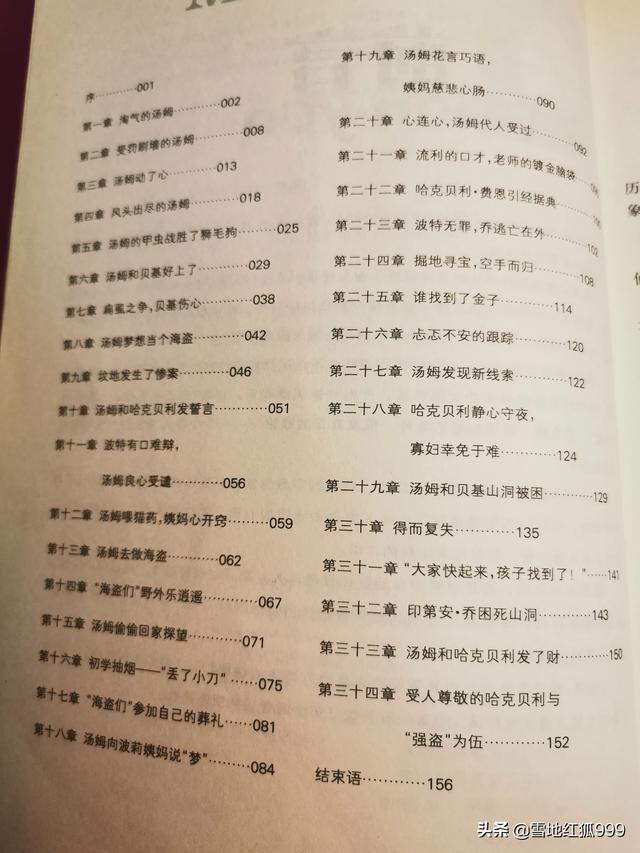 序…………001
第一章 淘气的汤姆…………002
第二章 受罚刷墙的汤姆…………008
第三章 汤姆动了心…………013
第四章 风头出尽的汤姆…………018
第五章 汤姆的甲虫战胜了狮毛狗…………025
第六章 汤姆和贝基好上了…………029
第七章 扁虱之争,贝基伤心…………038
第八章 汤姆梦想当个海盗…………042
第九章 坟地发生了惨案…………046
第十章 汤姆和哈克贝利发誓言…………051
第十一章 波特有口难辩,
汤姆良心受谴…………056
第十二章 汤姆喂猫药,姨妈心开窍…………059
第十三章 汤姆去做海盗…………062
第十四章 “海盗们”野外乐逍遥…………067
第十五章 汤姆偷偷回家探望…………071
第十六章 初学抽烟——“丢了小刀”……075
第十七章 “海盗们”参加自己的葬礼……081
第十八章 汤姆向波莉姨妈说“梦”………084
第十九章 汤姆花言巧语,
姨妈慈悲心肠…………090
第二十章 心连心,汤姆代人受过…………092
第二十一章 流利的口才,老师的镀金脑袋
第二十二章 哈克贝利·费恩引经据典…………
第二十三章 波特无罪,乔逃亡在外…………102
第二十四章 掘地寻宝,空手而归…………108
第二十五章 谁找到了金子…………114
第二十六章 忐忑不安的跟踪…………120
第二十七章 汤姆发现新线索…………122
第二十八章 哈克贝利静心守夜,
寡妇幸免于难…………124
第二十九章 汤姆和贝基山洞被困…………129
第三十章 得而复失…………135
第三十一章 “大家快起来,孩子找到了!”……141
第三十二章 印第安·乔困死山洞…………143
第三十三章 汤姆和哈克贝利发了财…………150
第三十四章 受人尊敬的哈克贝利与
“强盗”为伍…………152
结束语…………156
历
象
头条 @雪地红狐999